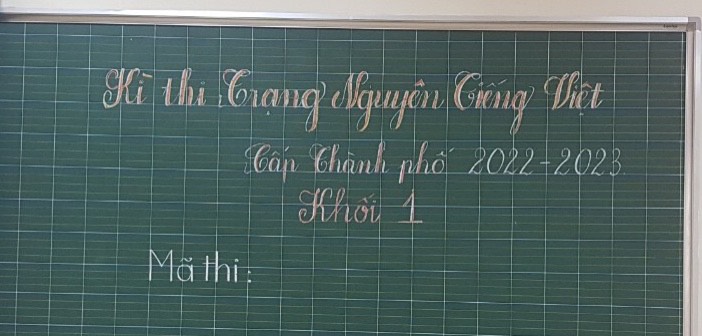 Kì thi Trạng Nguyên Tiếng Việt
Cấp Thành phố 2022-2023
Khối 1
Mã thi: